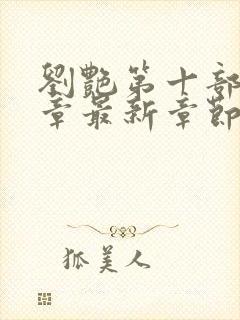 劉艷第十部
章最新章節
狐美人